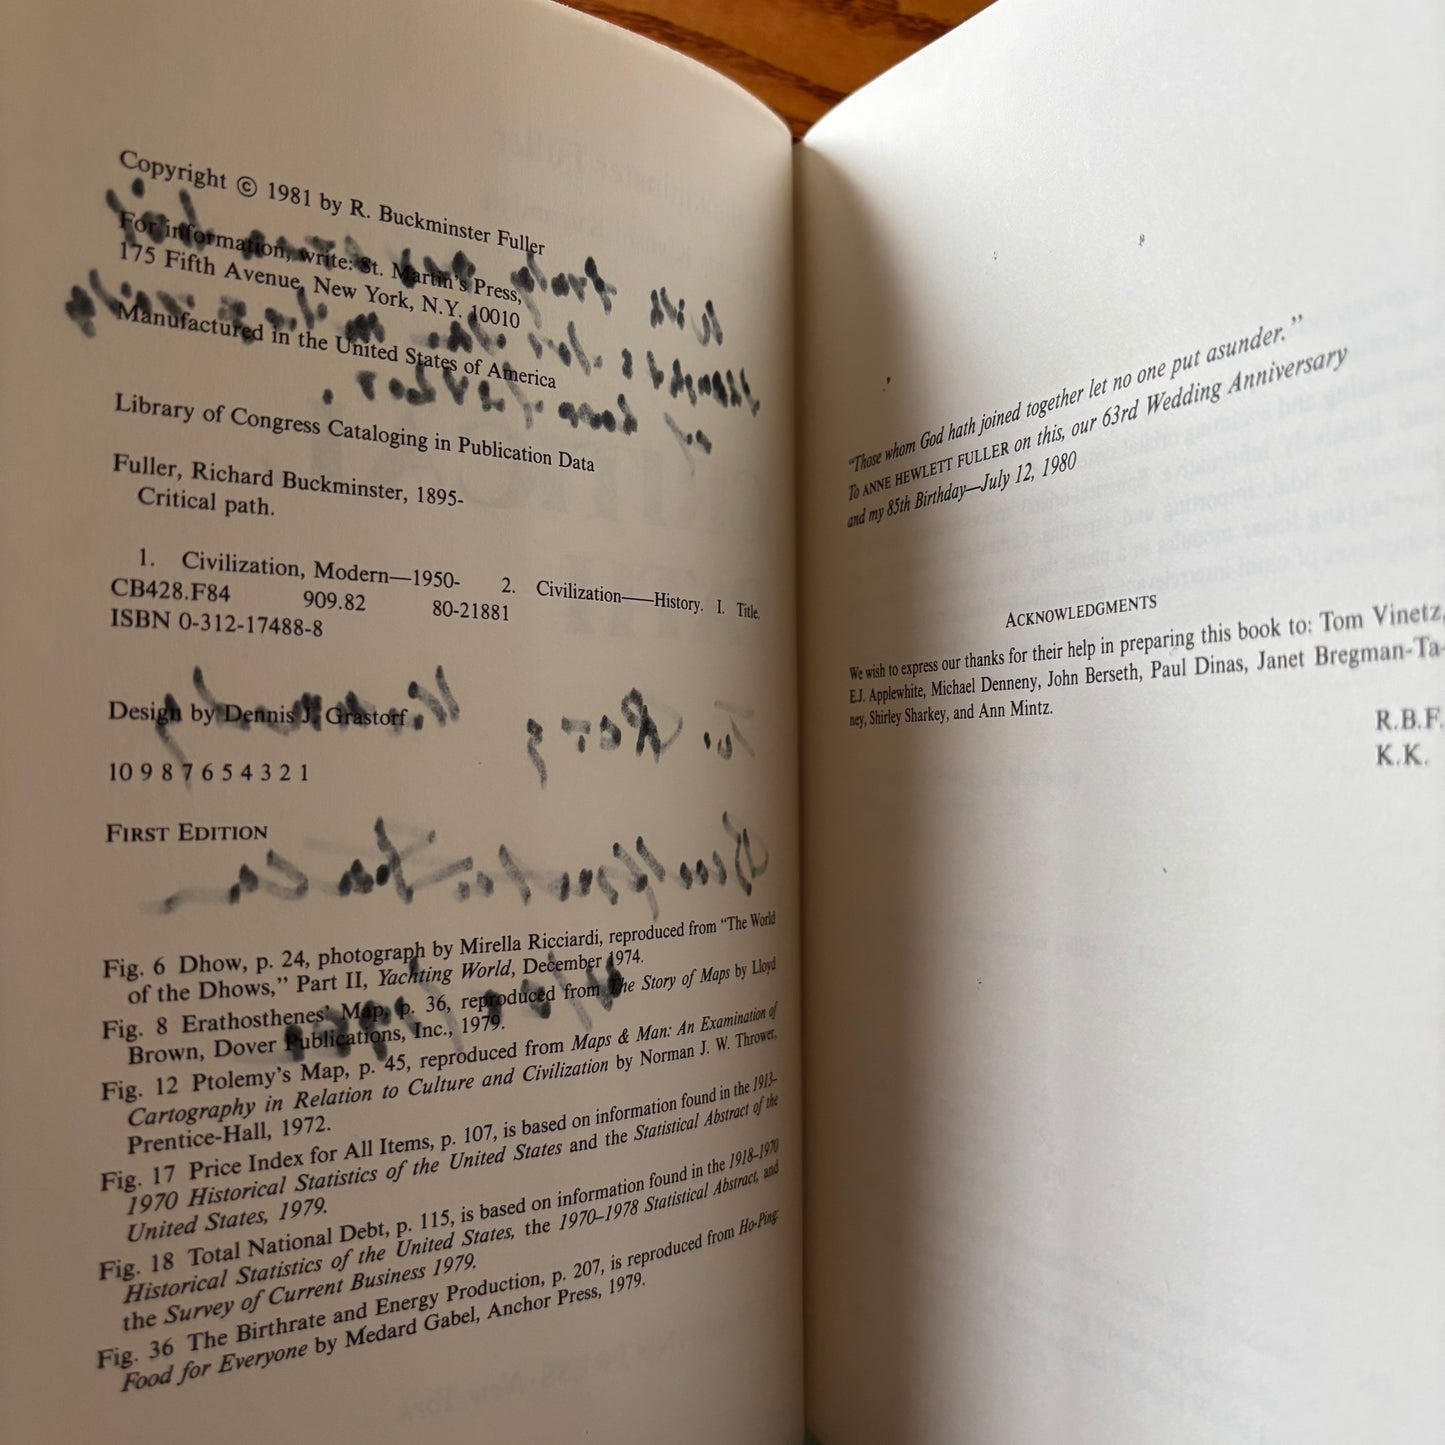 Copyright © 1981 by R. Buckminster Fuller
For information, write: St. Martin's Press,
175 Fifth Avenue, New York, N.Y. 10010
Manufactured in the United States of America
Library of Congress Cataloging in Publication Data
Fuller, Richard Buckminster, 1895-
Critical path.
1. Civilization, Modern—1950- 2. Civilization—History. I. Title.
CB428.F84 909.82 80-21881
ISBN 0-312-17488-8
Design by Dennis J. Grastorf
10 9 8 7 6 5 4 3 2 1
FIRST EDITION
Fig. 6 Dhow, p. 24, photograph by Mirella Ricciardi, reproduced from “The World
of the Dhows,” Part II, Yachting World, December 1974.
Fig. 8 Erathosthenes' Map, p. 36, reproduced from The Story of Maps by Lloyd
Brown, Dover Publications, Inc., 1979.
Fig. 12 Ptolemy's Map, p. 45, reproduced from Maps & Man: An Examination of
Cartography in Relation to Culture and Civilization by Norman J. W. Thrower,
Prentice-Hall, 1972.
Fig. 17 Price Index for All Items, p. 107, is based on information found in the 1913-
1970 Historical Statistics of the United States and the Statistical Abstract of the
United States, 1979.
Fig. 18 Total National Debt, p. 115, is based on information found in the 1918–1970
Historical Statistics of the United States, the 1970–1978 Statistical Abstract, and
the Survey of Current Business 1979.
Fig. 36 The Birthrate and Energy Production, p. 207, is reproduced from Ho-Ping:
Food for Everyone by Medard Gabel, Anchor Press, 1979.
“Those whom God hath joined together let no one put asunder.”
To ANNE HEWLETT FULLER on this, our 63rd Wedding Anniversary
and my 85th Birthday—July 12, 1980
ACKNOWLEDGMENTS
We wish to express our thanks for their help in preparing this book to: Tom Vinetz,
E.J. Applewhite, Michael Denneny, John Berseth, Paul Dinas, Janet Bregman-Ta-
ney, Shirley Sharkey, and Ann Mintz.
R.B.F.
K.K.